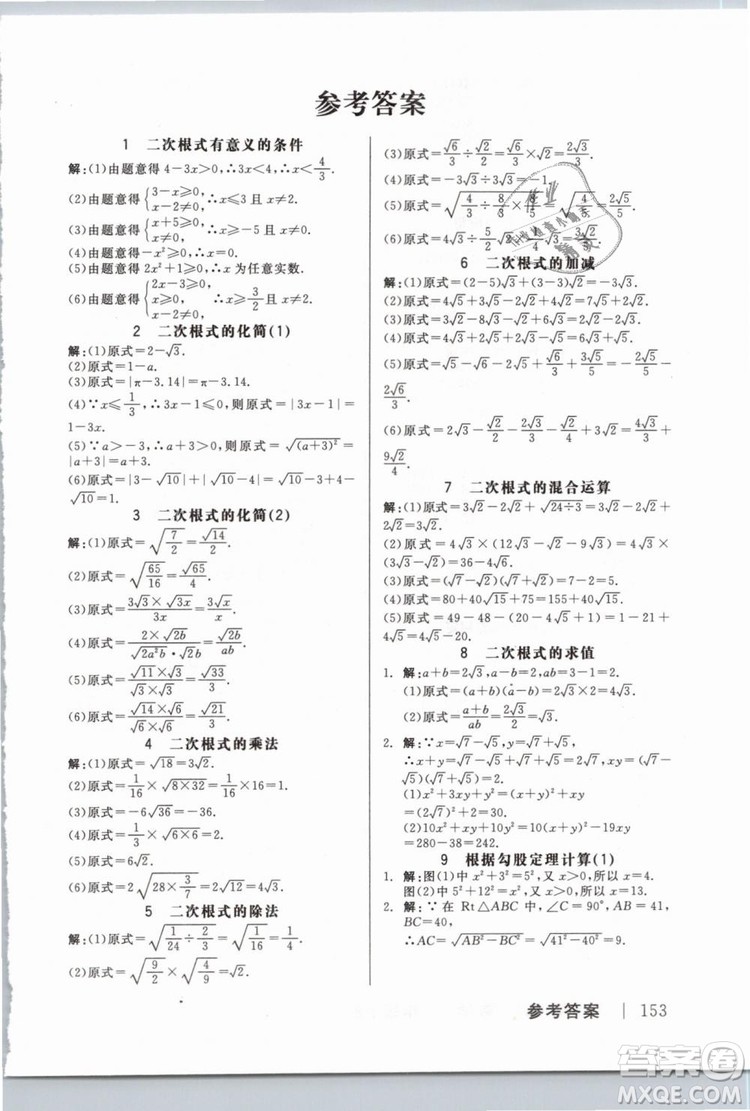 参考答案
1 二次根式有意义的条件
解:(1)由题意得4-3x>0,∴3x<4,∴x<4/3.
(2)由题意得{3-x≥0, x-2≠0,∴x≤3且x≠2.
(3)由题意得{x+5≥0, x≠0,∴x≥-5且x≠0.
(4)由题意得x-2>0,∴x>2.
(5)由题意得2x²+1≥0,∴x为任意实数.
(6)由题意得{2x-3≥0, x≥0, x-2≠0,∴x≥3/2且x≠2.
2 二次根式的化简(1)
解:(1)原式=2-√3.
(2)原式=1-a.
(3)原式=|π-3.14|=π-3.14.
(4)∵x≤1/3,∴3x-1≤0,则原式=|3x-1|=
1-3x.
(5)∵a>-3,∴a+3>0,则原式=√(a+3)²=
|a+3|=a+3.
(6)原式=|3-√10|+|√10-4|=√10-3+4
-√10=1.
3 二次根式的化简(2)
解:(1)原式=√(7/2)=√14/2.
(2)原式=√(65/16)=√65/4.
(3)原式=3√3×√3x/3x=3√x/x.
(4)原式=2×√2b/(√2a²b·√2b)=√2b/ab.
(5)原式=√11×√3/(√3×√3)=√33/3.
(6)原式=√14×√6/(√6×√6)=√21/3.
4 二次根式的乘法
解:(1)原式=√18=3√2.
(2)原式=1/4×√(8×32)=1/4×16=4.
(3)原式=-6√36=-36.
(4)原式=1/3×√(6×6)=2.
(5)原式=6√2.
(6)原式=2√(28×3/7)=2√12=4√3.
5 二次根式的除法
解:(1)原式=√(1/24÷2/3)=√(1/16)=1/4.
(2)原式=√(9/2)×√(4/9)=√2.
(3)原式=√6/3÷√6/2×√3=2√3/3.
(4)原式=-3√3÷3√3=-1.
(5)原式=√(4/3÷8/3×8/5)=
(6)原式=2√3÷3√3=2/3.
6 二次根式的加减
解:(1)原式=(2-5)√3=-3√3.
(2)原式=4√5+3√5-2√2+4√2=7√5+2√2.
(3)原式=3√2-8√2+3√3=-5√2+3√3.
(4)原式=4√3+2√5+2√3-√5=6√3+√5.
(5)原式=√5-√5/5+√6/3+3√5/5+√6/3=7√5/5+
2√6/3.
(6)原式=2√3-√2/4-√3/3+5√2/2=5√3/3+
9√2/4.
7 二次根式的混合运算
解:(1)原式=3√2-2√2+√(24÷3)=3√2-2√2+
2√2=3√2.
(2)原式=4√3×(12√3-9√3)=4√3×
(3√3-√3)=4√3×2√3=24.
(3)原式=(√7-√2)(√7+√2)=7-2=5.
(4)原式=80+40√15+75=155+40√15.
(5)原式=49-48-(20-4√5+1)=1-21+
4√5=4√5-20.
8 二次根式的求值
1. 解:a+b=2√3,a-b=2,ab=3-1=2.
(1)原式=(a+b)(a-b)=2√3×2=4√3.
(2)原式=(a+b)/ab=2√3/2=√3.
2. 解:∵x=√7-√5,y=√7+√5,
∴x+y=√7-√5+√7+√5=2√7,
xy=(√7-√5)(√7+√5)=2.
(1)x²+3xy+y²=(x+y)²+xy
=(2√7)²+2=30.
(2)10x²+10y²-x²y+xy²=
280-38=242.
9 根据勾股定理计算(1)
1. 解:图(1)中x²+3²=5²,因为x>0,所以x=4.
图(2)中5²+12²=x²,因为x>0,所以x=13.
2. 解:∵在Rt△ABC中,∠C=90°,AB=41,
BC=40,
∴AC=√(AB²-BC²)=√(41²-40²)=9.
参考答案 | 153
答案圈
MXQE.COM